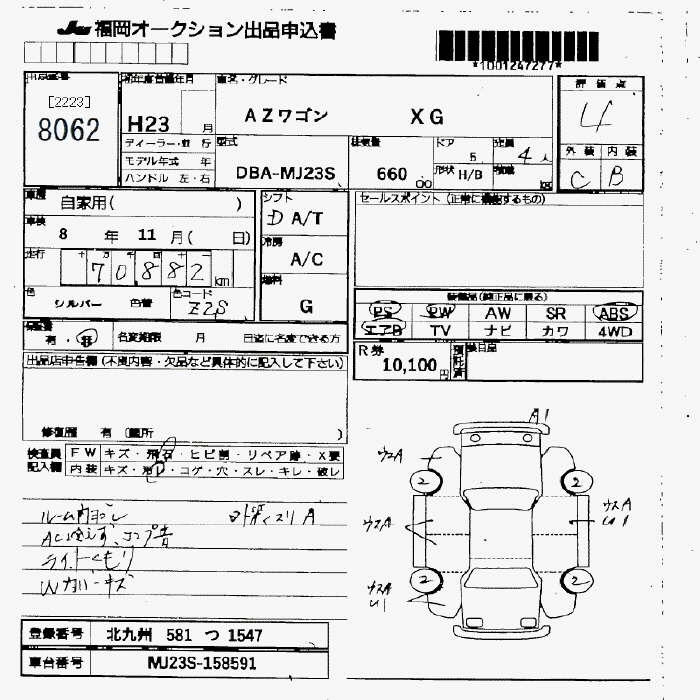 JU 福岡オークション出品申込書
*1001247277*
出品番号
[2223]
8062
初年度登録年月
H23 月
ディーラー・並 行
モデル年式 年
ハンドル 左・右
車名・グレード
AZワゴン XG
型式
DBA-MJ23S
排気量
660 00
ドア
5
定員
4 人
形状 H/B
積載 kg
評価点
4
外装 内装
C B
車歴
自家用( )
車検
8 年 11 月( 日)
走行
十 万 千 百 十 一
70882 km
色
シルバー 色替
色コード
Z2S
シフト
D A/T
冷房
A/C
燃料
G
セールスポイント (正常に機能するもの)
装備品(純正品に限る)
PS PW AW SR ABS
エアB TV ナビ カワ 4WD
保証書
有・無
名変期限 月 日迄に名変できる方
R券
10,100円
預託済
後日品
出品店申告欄(不良内容・欠品など具体的に記入して下さい)
修復歴 有 (箇所 )
検査員記入欄
FW キズ・飛石・ヒビ割・リペア跡・X要
内装 キズ・汚レ・コゲ・穴・スレ・キレ・破レ
ルーム内ヨゴレ
ライトくもり
Wカバーキズ
A1
ウスA
2 2
ウスA
ウスA
U1
2 2
ウスA
U1
登録番号 北九州 581 つ 1547
車台番号 MJ23S-158591